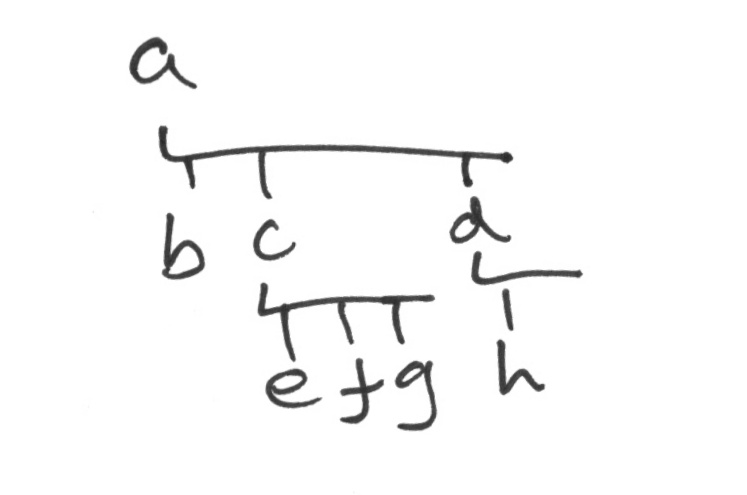 a
b c d
e f g h